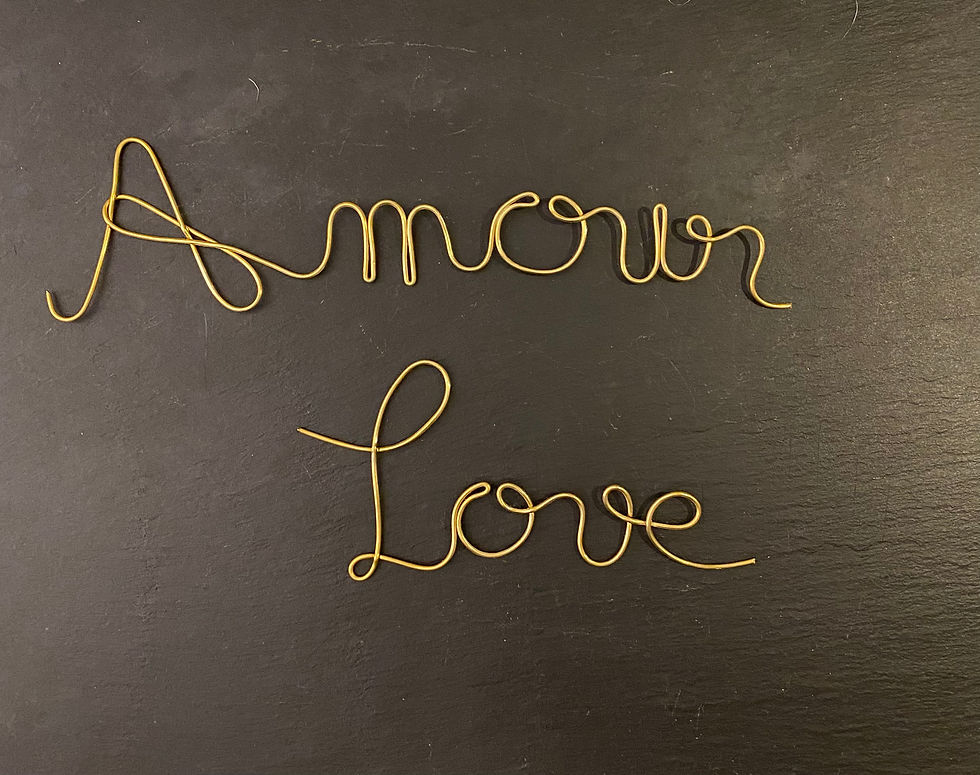 Amour
Love